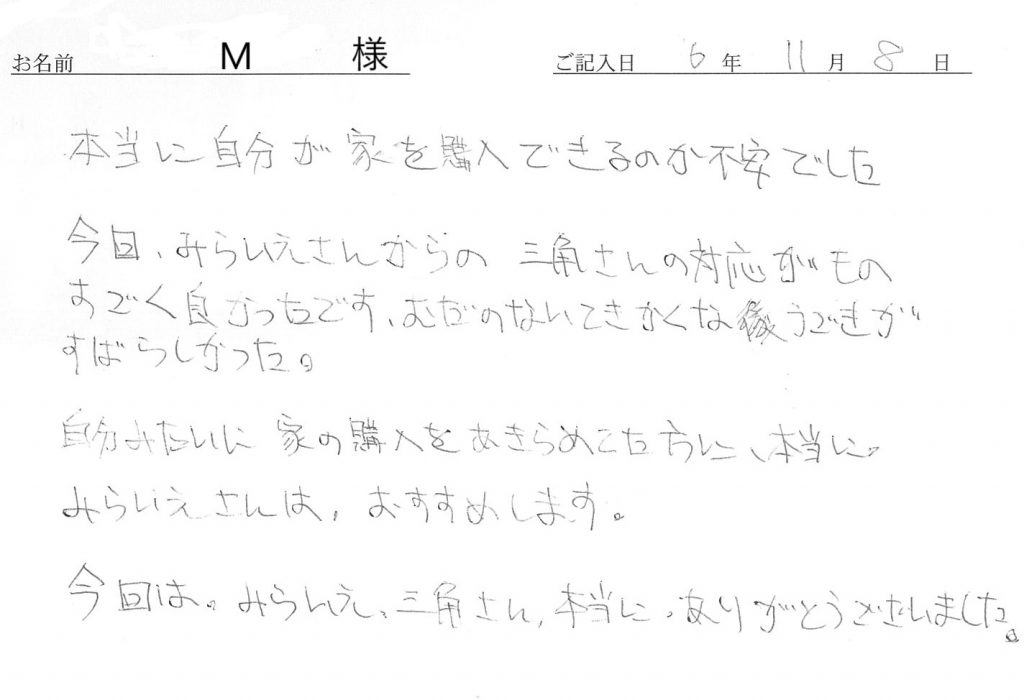 お名前 M 様 ご記入日 6年 11月 8日
本当に自分が家を購入できるのか不安でした
今回、みらいえさんからの 三角さんの対応がもの
すごく良かったです、むだのないてきかくな うごきが
すばらしかった。
自分みたいに 家の購入をあきらめてた方に、本当に。
みらいえさんは、おすすめします。
今回は。みらいえ、三角さん、本当に、ありがとうございました。